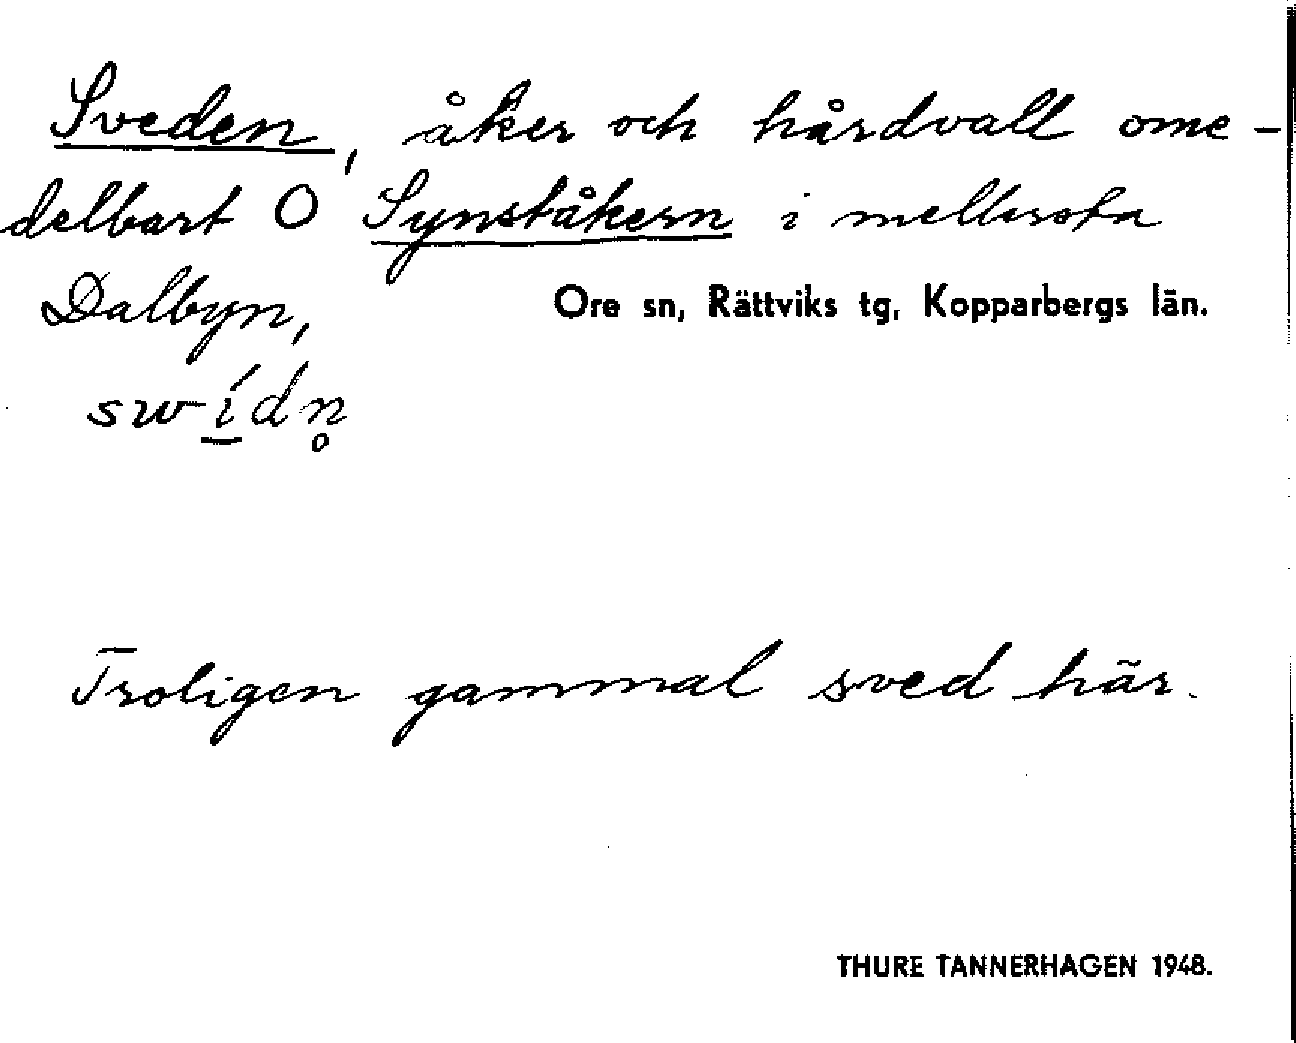 Sveden, åker och hårdvall ome-
delbart O Synståkern i mellersta
Dalbyn,
Ore sn, Rättviks tg, Kopparbergs län.
swí̱dn̥
Troligen gammal sved här.
THURE TANNERHAGEN 1948.